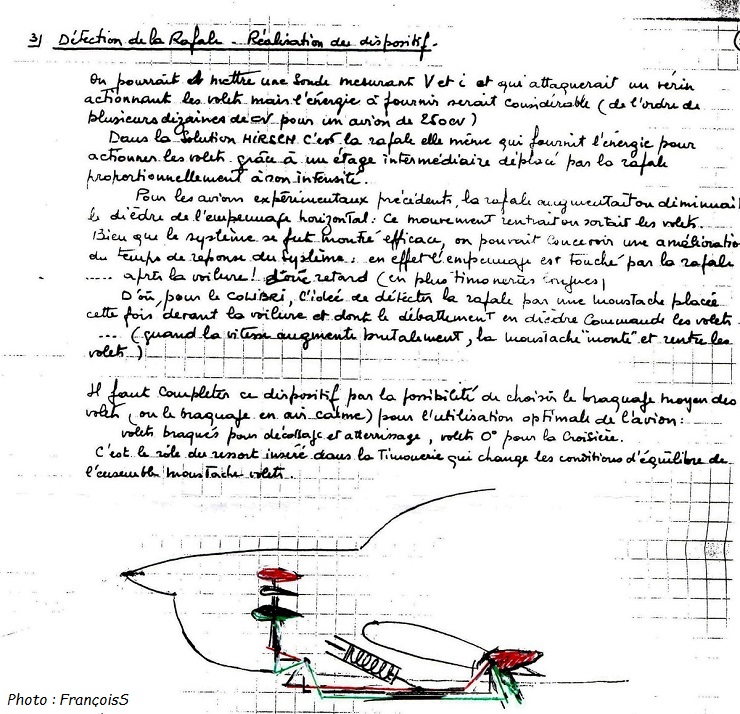 3) Détection de la Rafale - Réalisation du dispositif.
On pourrait mettre une sonde mesurant V et i et qui attaquerait un vérin
actionnant les volets mais l'énergie à fournir serait considérable (de l'ordre de
plusieurs dizaines de CV pour un avion de 250 CV)
Dans la solution HIRSCH c'est la rafale elle même qui fournit l'énergie pour
actionner les volets grâce à un étage intermédiaire déplacé par la rafale
proportionnellement à son intensité.
Pour les avions expérimentaux précédents, la rafale augmentait ou diminuait
le dièdre de l'empennage horizontal : ce mouvement rentrait ou sortait les volets.
Bien que le système se fut montré efficace, on pouvait concevoir une amélioratio
du temps de réponse du système : en effet l'empennage est touché par la rafale
..... après la voilure ! d'où retard (en plus timoneries longues)
D'où, pour le COLIBRI, l'idée de détecter la rafale par une moustache placée
cette fois devant la voilure et dont le débattement en dièdre commande les volets.
... (quand la vitesse augmente brutalement, la moustache "monte" et rentre les
volets)
Il faut completer ce dispositif par la possibilité de choisir le braquage moyen des
volets (ou le braquage en air calme) pour l'utilisation optimale de l'avion :
volets braqués pour décollage et atterrissage, volets 0° pour la Croisière.
C'est le rôle du ressort inséré dans la Timonerie qui change les conditions d'équilibre de
l'ensemble moustache volets.
Photo : FrançoisS